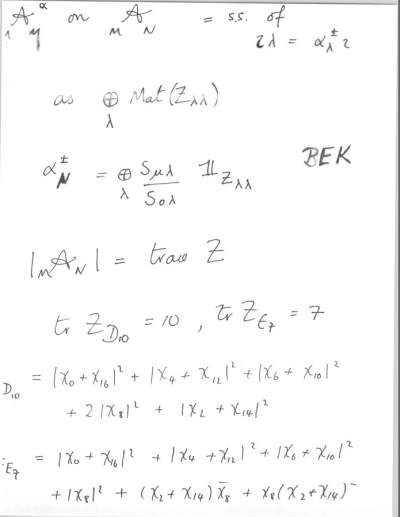 𝒜^α on _M𝒜_N = s.s. of
ιλ = α_λ^± ι
as ⊕_λ Mat(Z_λλ)
α_N^± = ⊕_λ S_μλ / S_0λ 𝟙_{Z_λλ} BEK
|_M𝒜_N| = trace Z
tr Z_{D_10} = 10 , tr Z_{E_7} = 7
D_10 = |χ_0 + χ_16|² + |χ_4 + χ_12|² + |χ_6 + χ_10|²
+ 2|χ_8|² + |χ_2 + χ_14|²
E_7 = |χ_0 + χ_16|² + |χ_4 + χ_12|² + |χ_6 + χ_10|²
+ |χ_8|² + (χ_2 + χ_14) χ̄_8 + χ_8(χ_2 + χ_14)¯